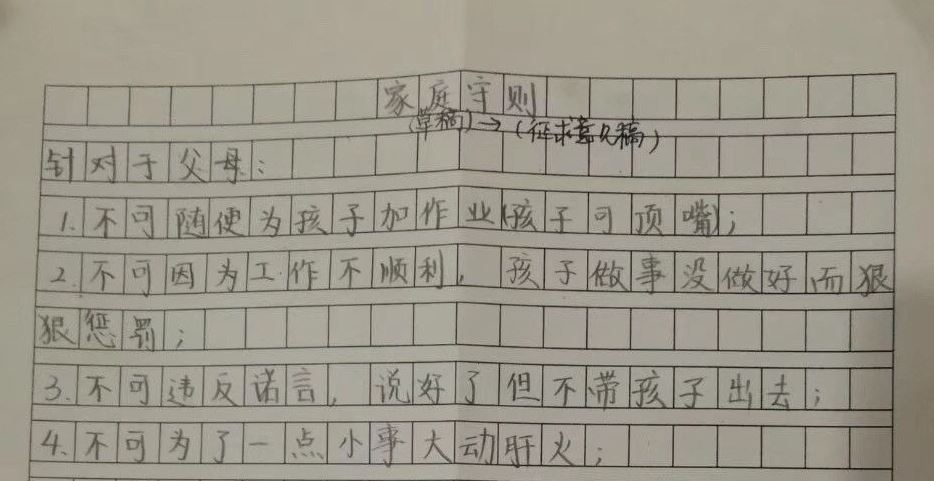 家庭守则
(草稿)→(征求意见稿)
针对于父母:
1.不可随便为孩子加作业(孩子可顶嘴);
2.不可因为工作不顺利,孩子做事没做好而狠
狠惩罚;
3.不可违反诺言,说好了但不带孩子出去;
4.不可为了一点小事大动肝火;